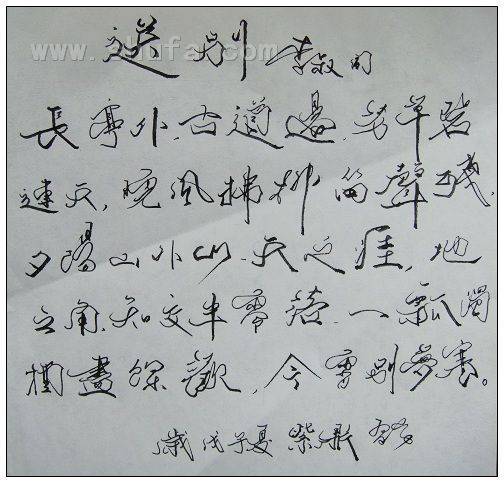 送别 李叔同
長亭外,古道邊,芳草碧
連天,晚風拂柳笛聲殘
夕陽山外山.天之涯,地
之角,知交半零落.一瓢濁
酒盡餘歡,今宵别夢寒。
歲戊子夏